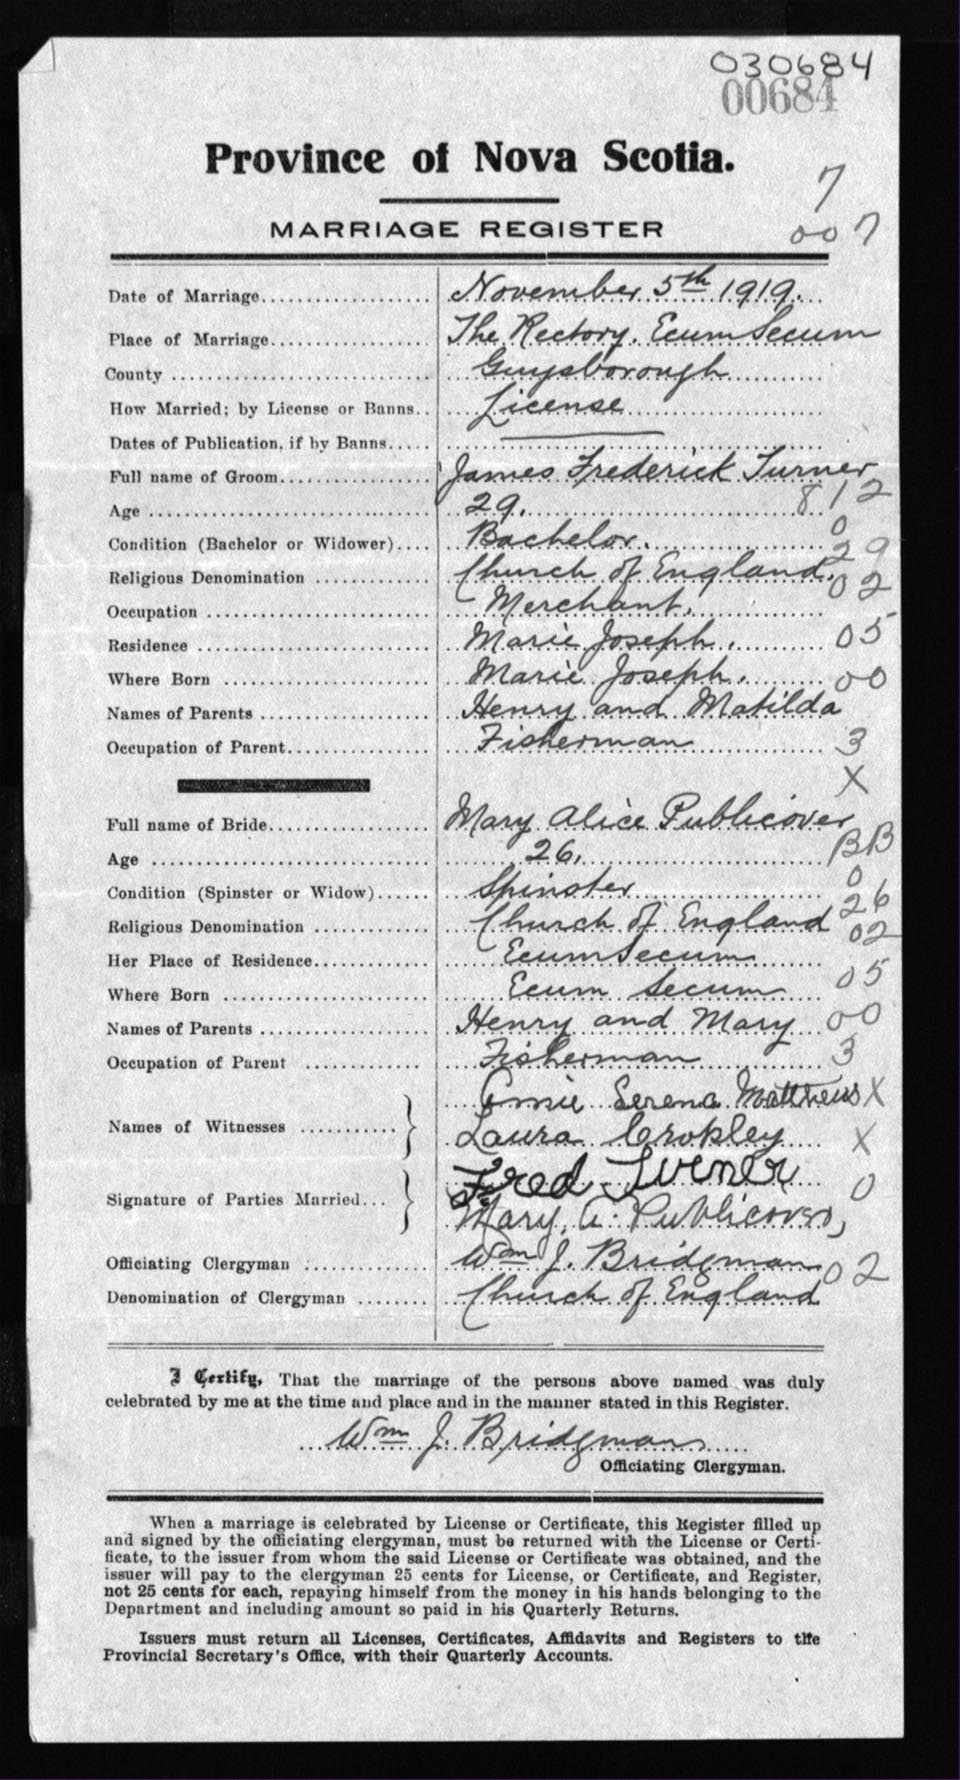 030684
00684
Province of Nova Scotia.
7
MARRIAGE REGISTER
007
Date of Marriage.................... November 5th 1919.
Place of Marriage.................. The Rectory. Ecum Secum
County ............................. Guysborough
How Married; by License or Banns.. License
Dates of Publication, if by Banns.....
Full name of Groom................ James Frederick Turner
Age ............................... 29. 812
Condition (Bachelor or Widower).... Bachelor. 0
Religious Denomination ............ Church of England. 29
Occupation ........................ Merchant. 02
Residence ......................... Marie Joseph. 05
Where Born ...................... Marie Joseph. 00
Names of Parents .................. Henry and Matilda
Occupation of Parent............... Fisherman 3
X
Full name of Bride................. Mary Alice Publicover
Age ............................... 26. BB
Condition (Spinster or Widow)...... Spinster 0
26
Religious Denomination ............ Church of England 02
Her Place of Residence............. Ecum Secum
Where Born ...................... Ecum Secum 05
Names of Parents .................. Henry and Mary 00
Occupation of Parent ............. Fisherman 3
Serena Matthews X
Names of Witnesses ........... Laura X
Fred Turner
Signature of Parties Married... 0
Mary. A. Publicover,
Officiating Clergyman ............. Wm J. Bridgman 02
Denomination of Clergyman ........ Church of England
I Certify, That the marriage of the persons above named was duly
celebrated by me at the time and place and in the manner stated in this Register.
Wm J. Bridgman
Officiating Clergyman.
When a marriage is celebrated by License or Certificate, this Register filled up
and signed by the officiating clergyman, must be returned with the License or Certi-
ficate, to the issuer from whom the said License or Certificate was obtained, and the
issuer will pay to the clergyman 25 cents for License, or Certificate, and Register,
not 25 cents for each, repaying himself from the money in his hands belonging to the
Department and including amount so paid in his Quarterly Returns.
Issuers must return all Licenses, Certificates, Affidavits and Registers to the
Provincial Secretary's Office, with their Quarterly Accounts.